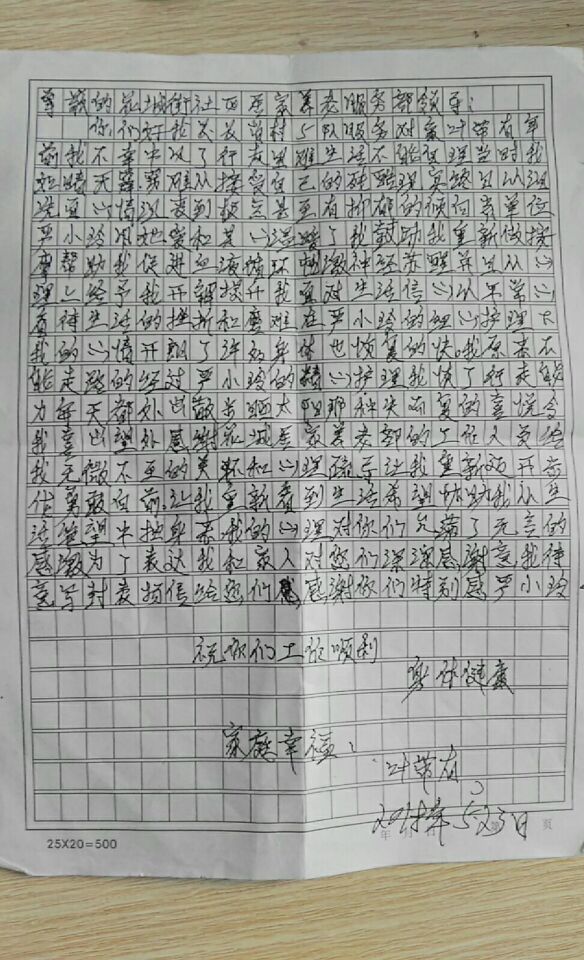 尊敬的花城街社区居家养老服务部领导：
你们好我是 村5队服务对象叶带有年
前我不幸中风了行走困难生活不能自理当时我
如晴天霹雳难从接受自己的残酷现实终日以泪
洗面心情沉衰到极点甚至有抑郁的倾向贵单位
严小玲用她爱和真心温暖了我鼓励我重新做按
摩帮助我促进血液循环刺激神经苏醒并且从心
理上给予我开解提升我面对生活信心以平常心
看待生活的挫折和磨难在严小玲的细心护理下
我的心情开朗了许多身体也恢复的快。我原来不
能走路的经过严小玲的精心护理我恢了行走能
力每天都外出散步晒太阳那种失而复的喜悦令
我喜出望外感谢花城居家养老部的工作人员给
我无微不至的关怀和心理疏导让我重新 开
勇敢向前,让我重新看到生活希望 助我从生
活 望中 我的心理对你们充满了无言的
感激为了表达我和家人对您们深深感谢意我特
意写封表扬信给您们 感谢你们特别感严小玲
祝你们工作顺利
身体健康
家庭幸福：
叶带有
5.23日
25X20=500
年 月 日 第 页